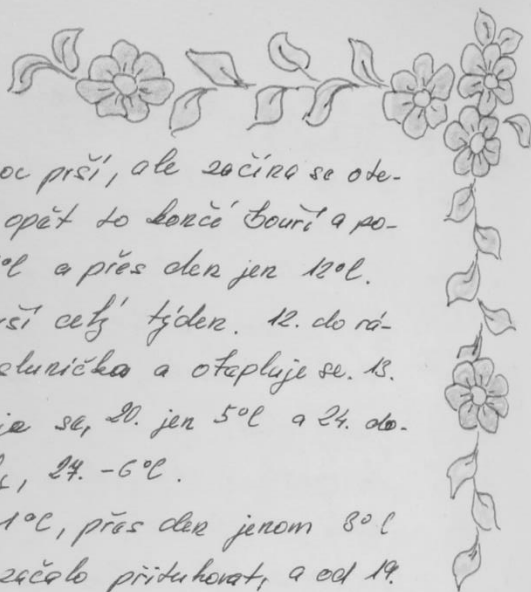 prší, ale začíná se ote-
opět to končí bouří a po-
°C a přes den jen 12°C.
ší celý týden. 12. do rá-
sluníčka a otepluje se. 13.
je se, 20. jen 5°C a 24. do-
27. -6°C.
1°C, přes den jenom 8°C
začalo přituhovat, a od 19.